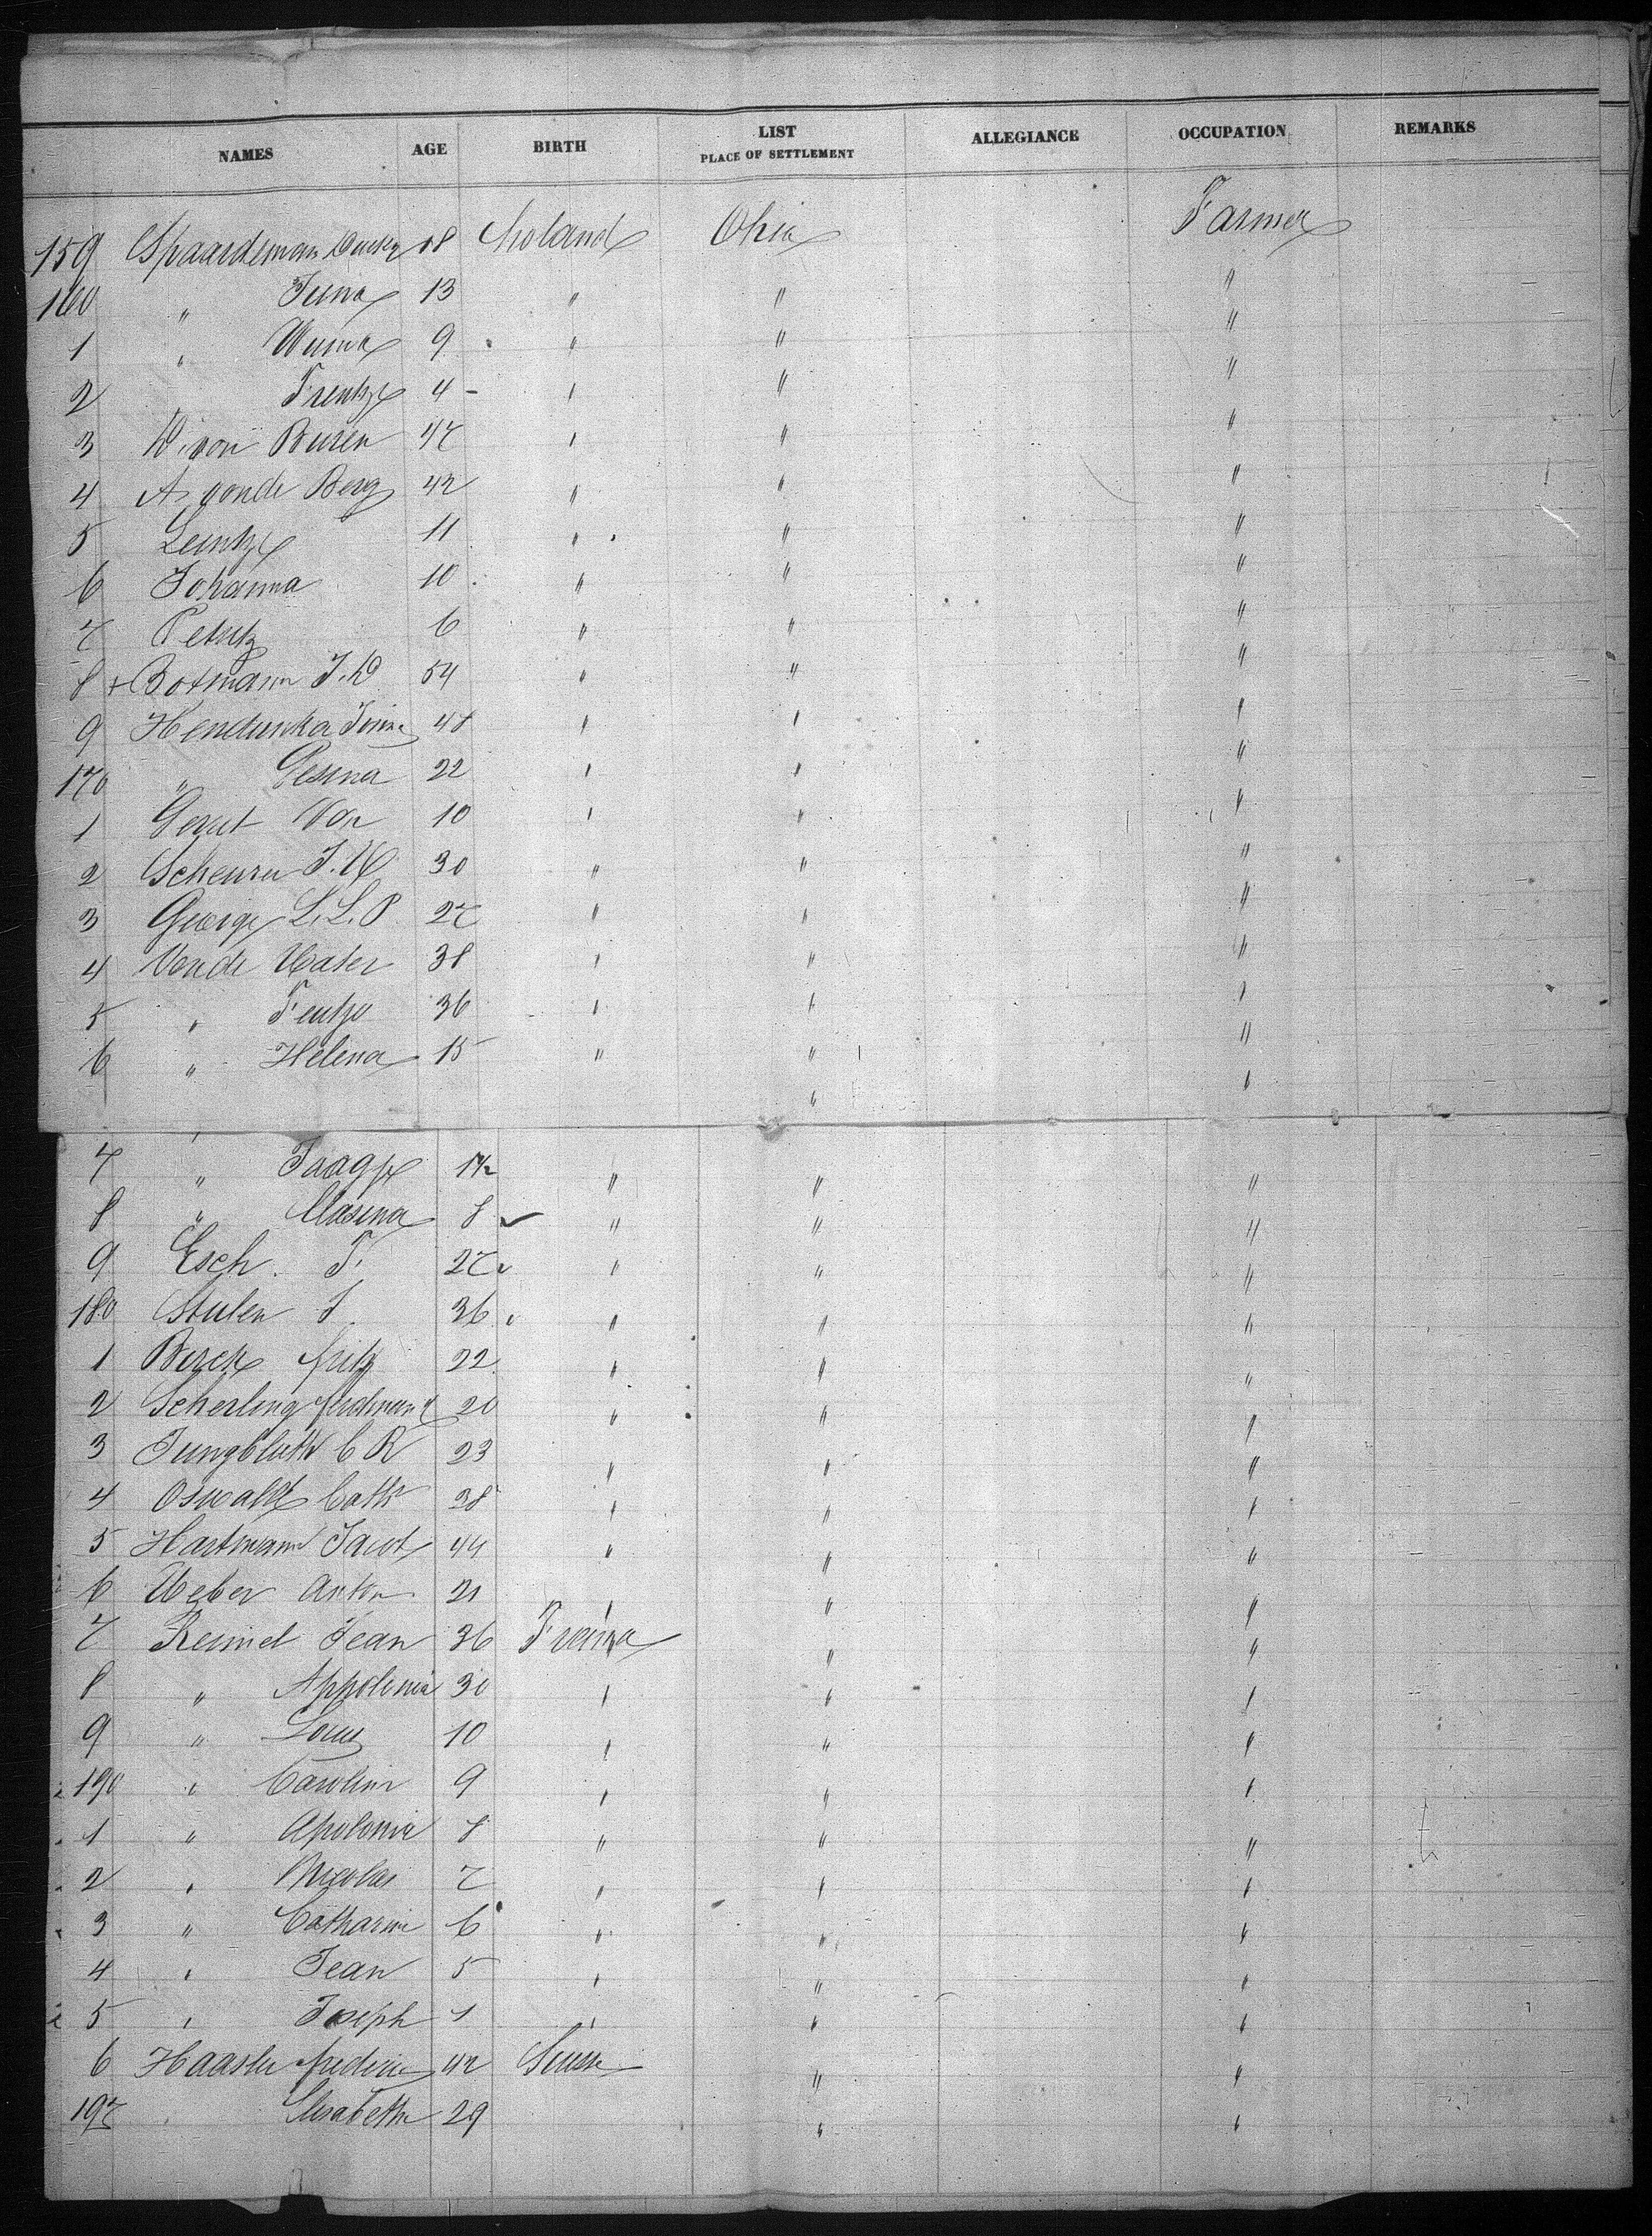 NAMES AGE BIRTH LIST PLACE OF SETTLEMENT ALLEGIANCE OCCUPATION REMARKS
159 Spaardeman 18 Holand Ohio Farmer
160 " 13 " " "
1 " 9 " " "
2 Trentje 4 - " " "
3 W. von Buren 47 " " "
4 A vonde Berg 42 " " "
5 Leintje 11 " " "
6 Johanna 10 " " "
7 6 " " "
8 + Botmann J. D 54 " " "
9 48 " " "
170 " Gesina 22 " " "
1 Gerrit Von 10 " " "
2 Scheurer J. W 30 " " "
3 George L. L. P. 27 " " "
4 Vonde Water 38 " " "
5 " 36 " " "
6 " Helena 15 " " "
" "
7 " Jaagje " " "
8 " Clasina 8 " " "
9 Esch. T. 27 " " "
180 Stulen J. 36 " " "
1 Berck fritz 22 " " "
2 Scherling ferdinand 20 " " "
3 Jungbluth C R 23 " " "
4 Oswald Cath 28 " " "
5 Hartmann Jacob 44 " " "
6 Weber Anton 21 " " "
7 Jean 36 France " "
8 " Appolonia 30 " " "
9 " Louis 10 " " "
190 " Carolin 9 " " "
1 " Apolonia 8 " " "
2 " Nicolas 7 " " "
3 " Catharine 6 " " "
4 " Jean 5 " " "
5 " Joseph 1 " " "
6 Haasler frederic 42 Suisse " "
197 " Elisabethe 29 " "